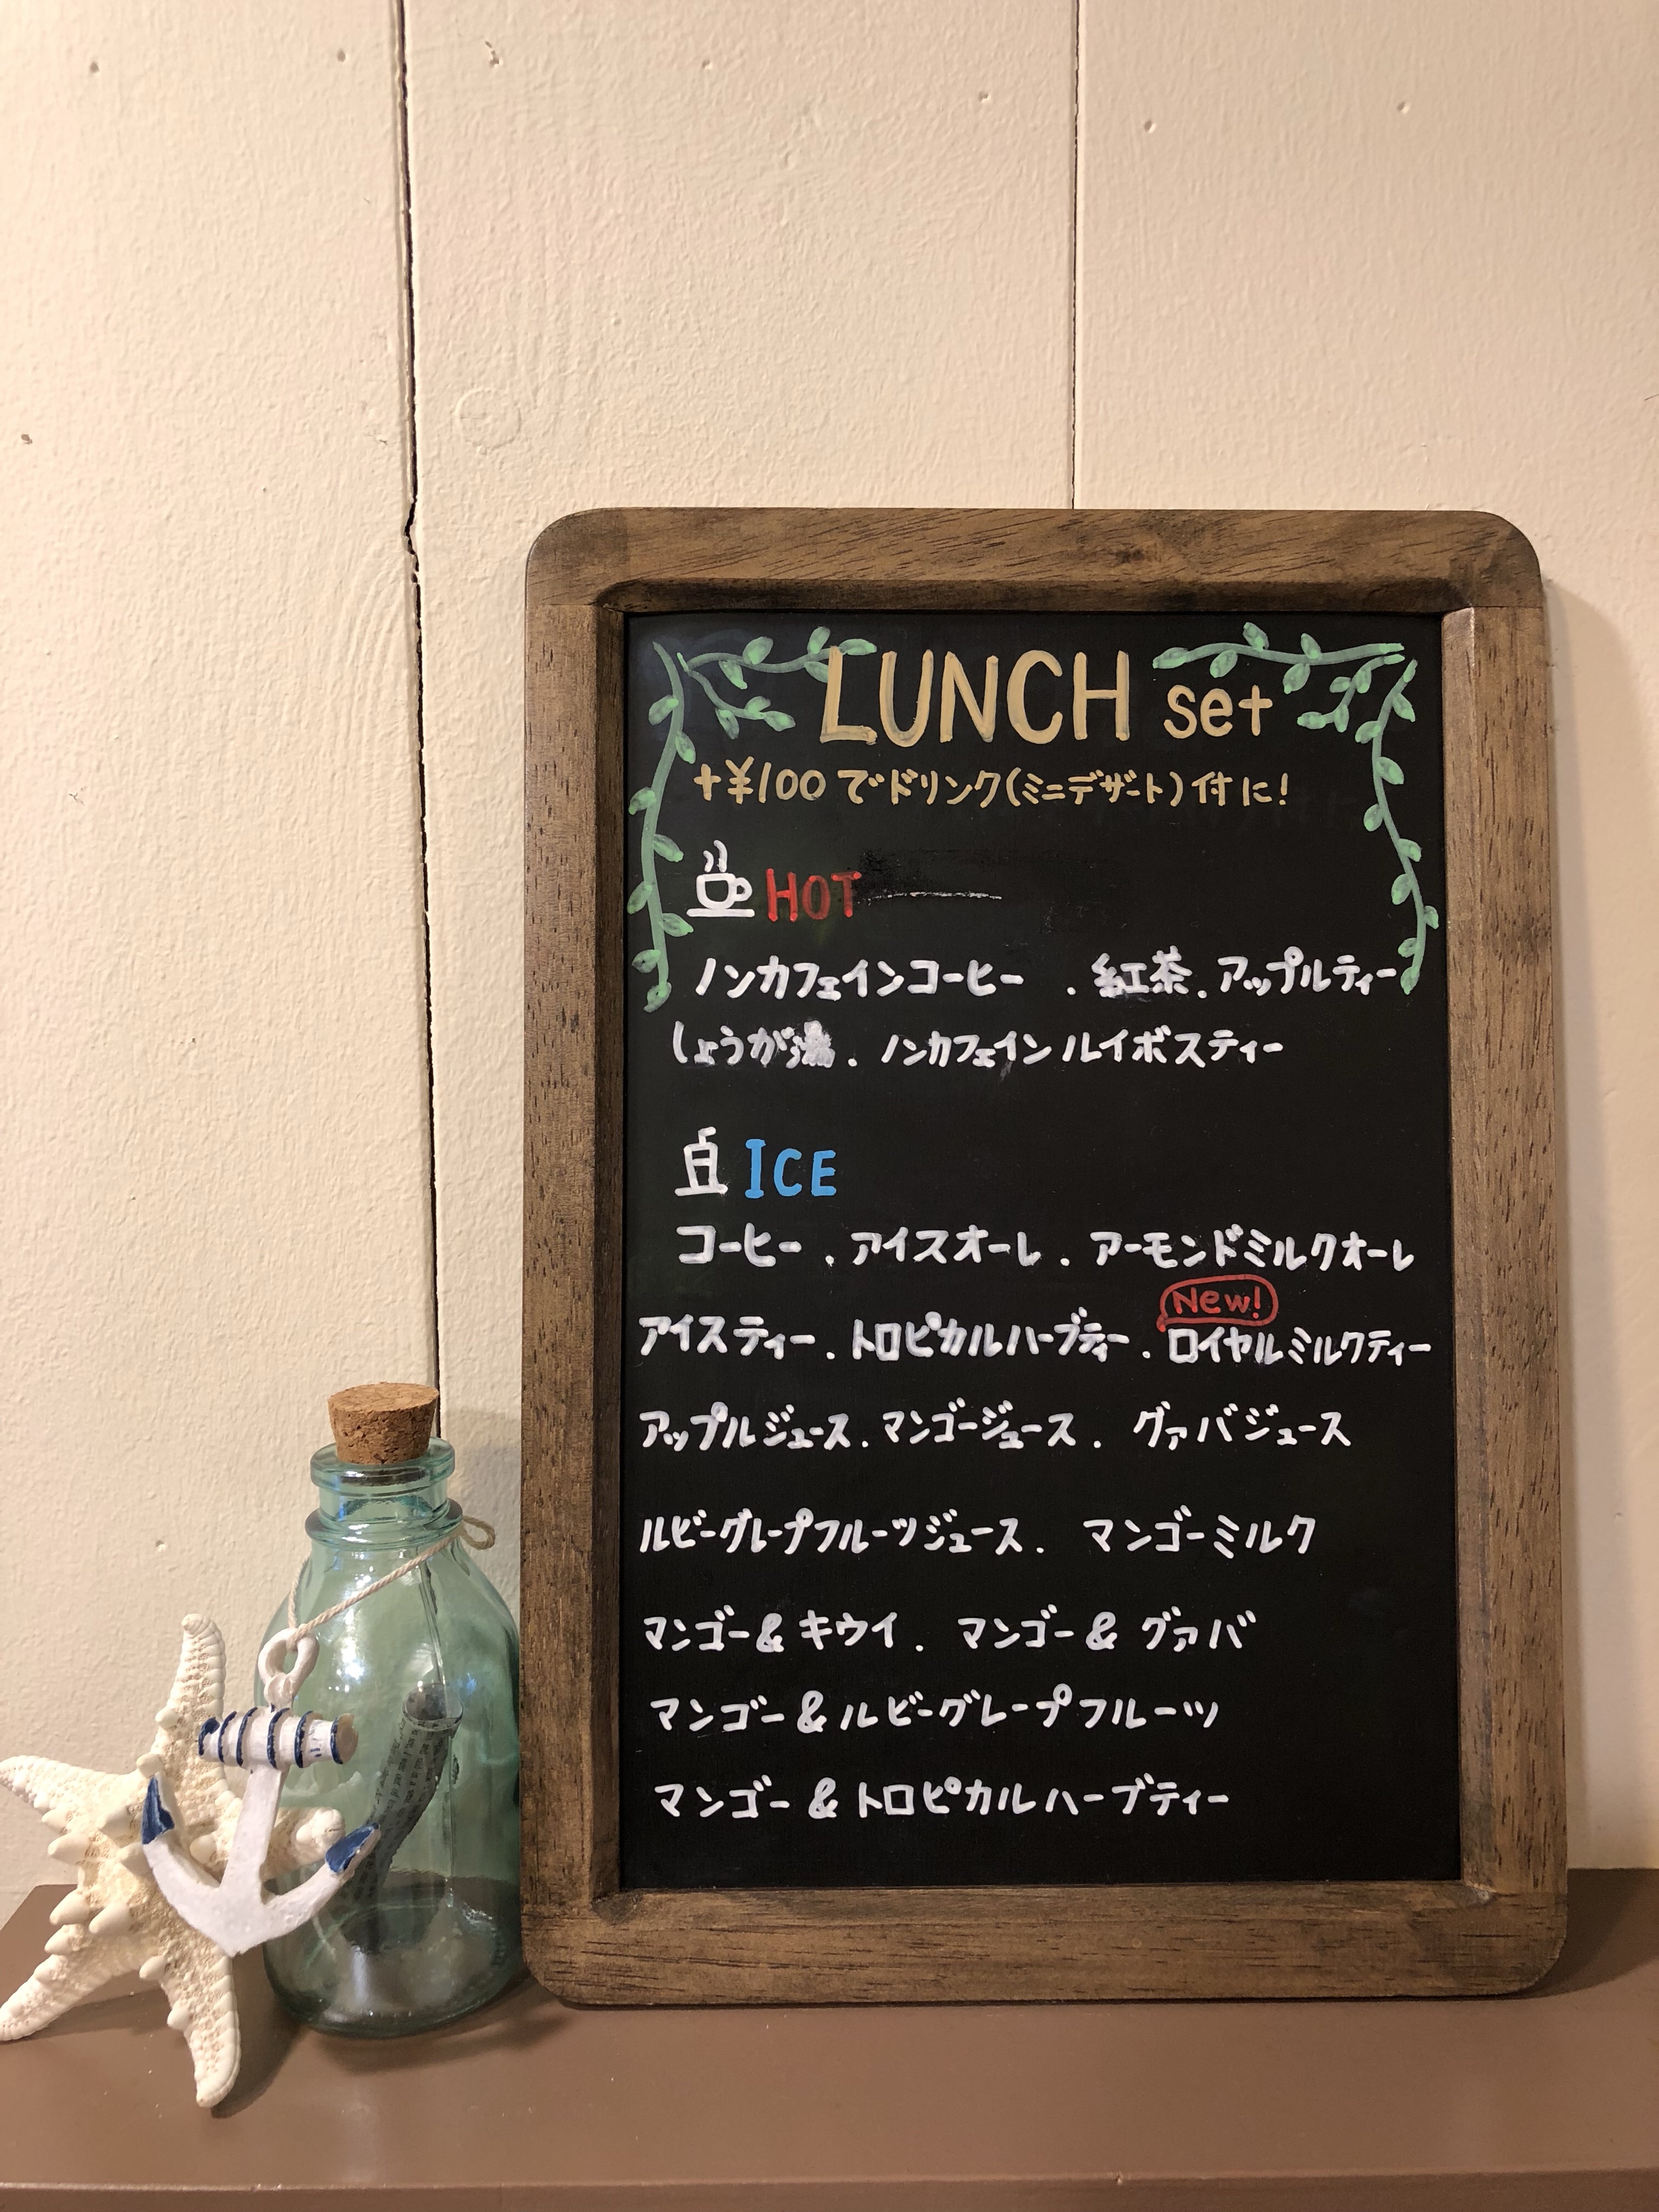 LUNCH set
+¥100でドリンク(ミニデザート)付に!
HOT
ノンカフェインコーヒー . 紅茶 . アップルティー
しょうが湯 . ノンカフェインルイボスティー
ICE
コーヒー . アイスオーレ . アーモンドミルクオーレ
New!
アイスティー . トロピカルハーブティー . ロイヤルミルクティー
アップルジュース . マンゴージュース . グァバジュース
ルビーグレープフルーツジュース . マンゴーミルク
マンゴー&キウイ . マンゴー&グァバ
マンゴー&ルビーグレープフルーツ
マンゴー&トロピカルハーブティー